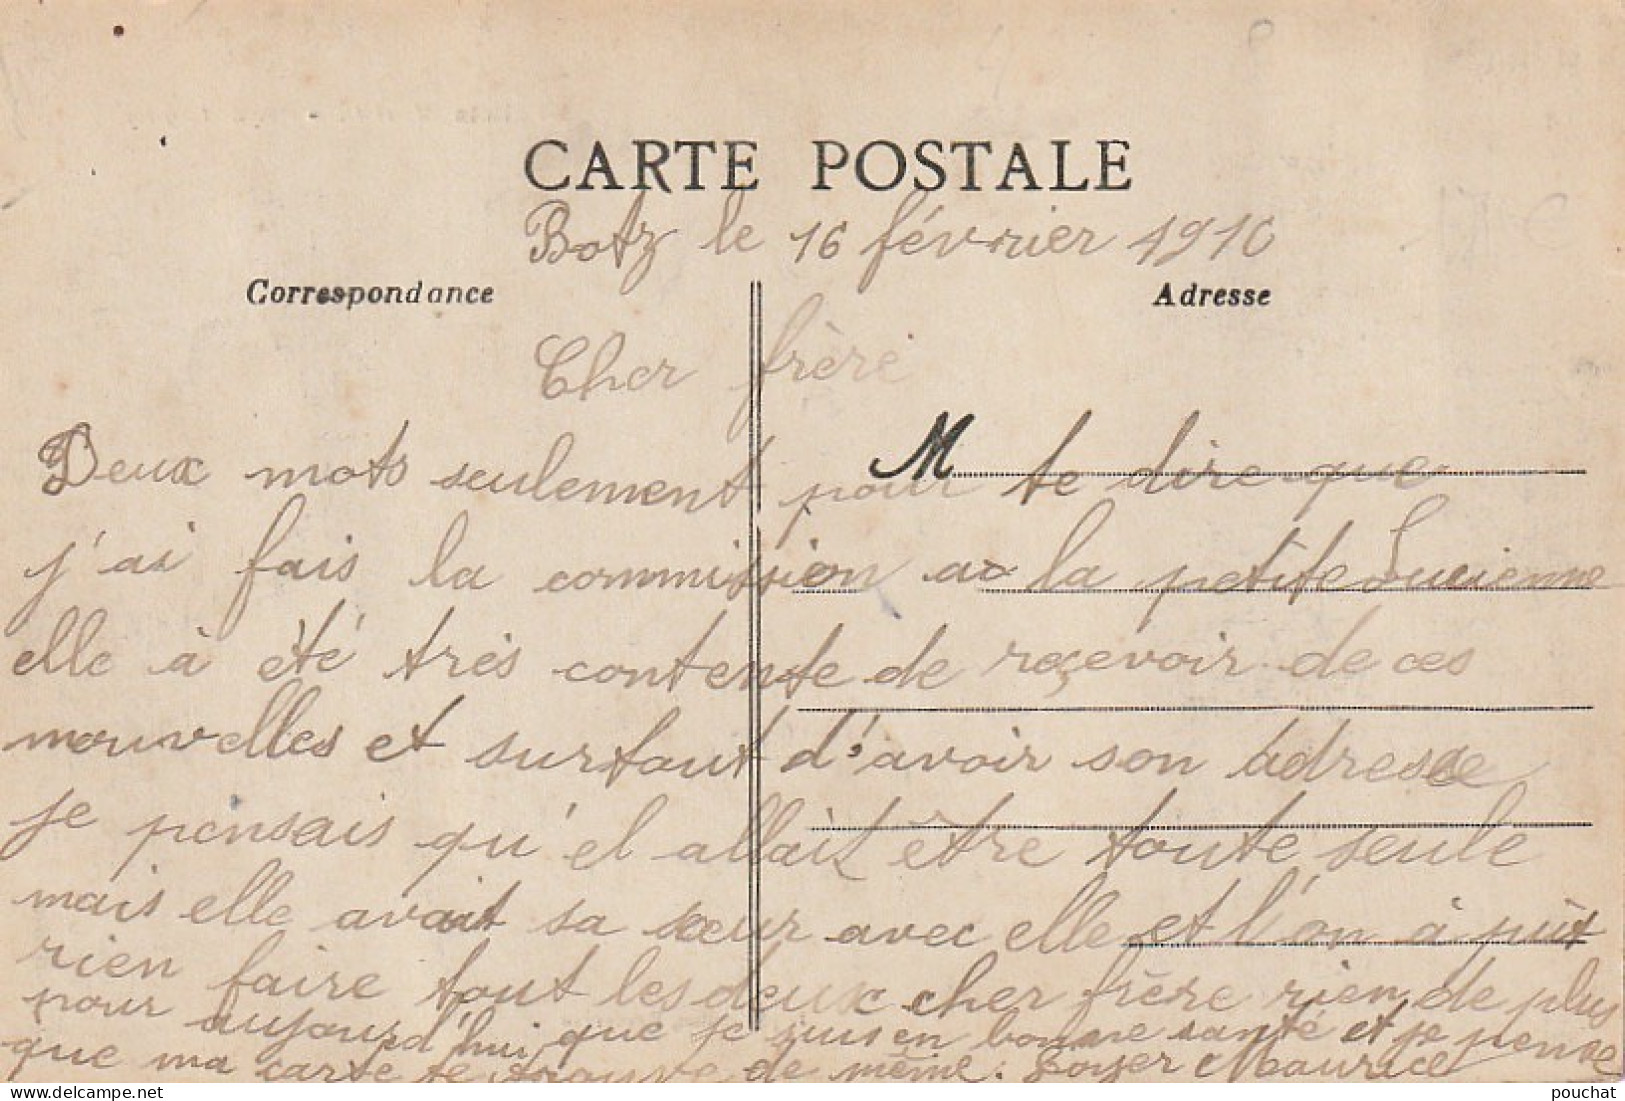 CARTE POSTALE
Botz le 16 février 1910
Correspondance Adresse
Cher frère
M
Deux mots seulement pour te dire que
j'ai fais la commission a la petite Lucienne
elle à été très contente de reçevoir de ces
nouvelles et surtout d'avoir son adresse
je pensais qu'el allait être toute seule
mais elle avait sa sœur avec elle et l'on à pût
rien faire tout les deux cher frère rien de plus
pour aujourd'hui que je suis en bonne santé et je pense
que ma carte te trouve de même. Maurice
pouchat